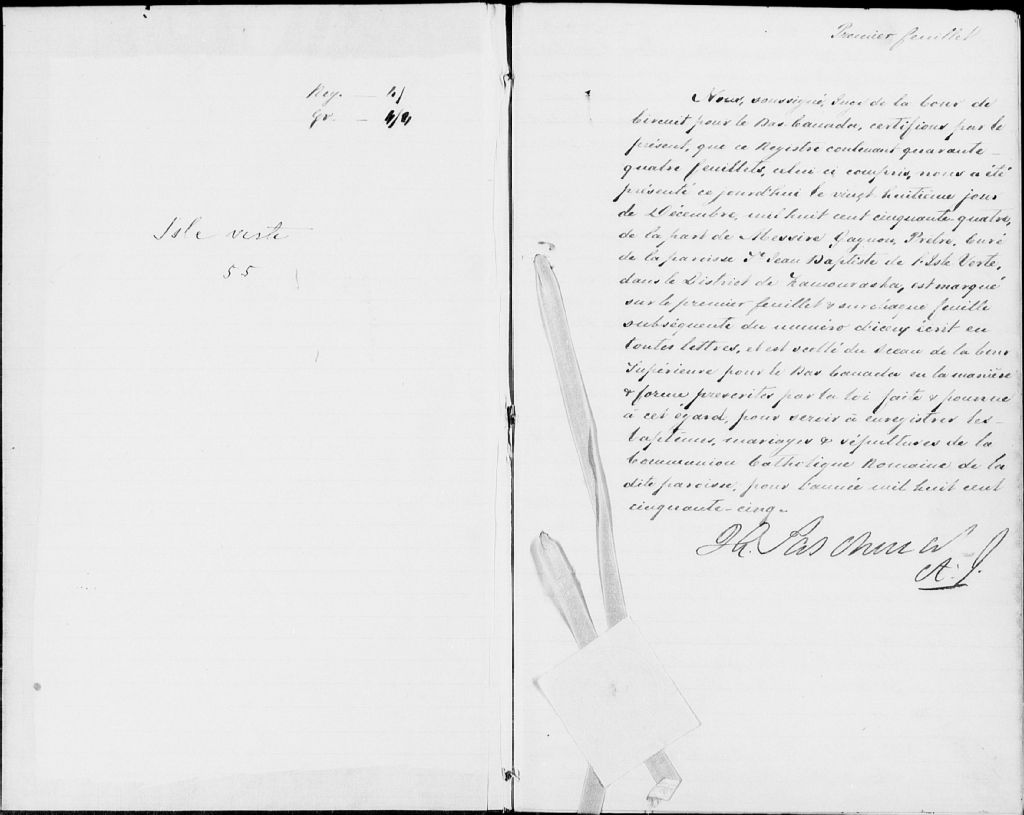 Reg. —
Gr. —
Isle verte
55
Premier feuillet
Nous, soussigné, Juge de la Cour de
Circuit pour le Bas Canada, certifions par le
présent, que ce Registre contenant quarante-
quatre feuillets, celui ci compris, nous a été
présenté ce jourd'hui le vingt huitième jour
de Décembre, mil huit cent cinquante-quatre,
de la part de Messire Gagnon, Prêtre, Curé
de la paroisse St Jean Baptiste de l'Isle Verte,
dans le District de Kamouraska, est marqué
sur le premier feuillet & sur chaque feuille
subséquente du numéro d'iceux écrit en
toutes lettres, et est scellé du Sceau de la Cour
Supérieure pour le Bas Canada en la manière
& forme prescrites par la loi faite & pourvue
à cet égard, pour servir à enregistrer les
baptêmes, mariages & sépultures de la
Communion Catholique Romaine de la
dite paroisse, pour l'année mil huit cent
cinquante-cinq.
A. J.